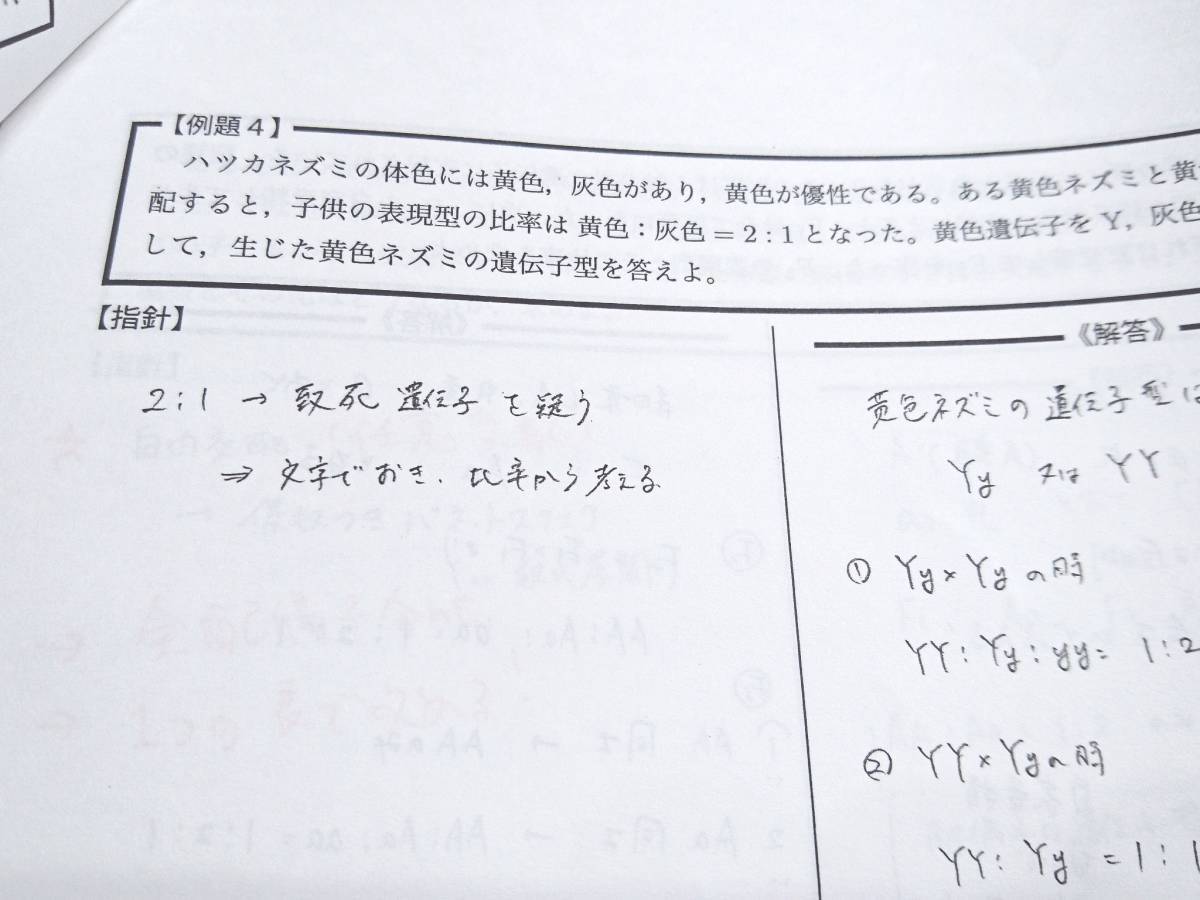 【例題4】
ハツカネズミの体色には黄色，灰色があり，黄色が優性である。ある黄色ネズミと黄
配すると，子供の表現型の比率は 黄色：灰色＝2：1となった。黄色遺伝子をY，灰色
して，生じた黄色ネズミの遺伝子型を答えよ。
【指針】
2:1 → 致死遺伝子を疑う
⇒ 文字でおき、比率から考える
《解答》
黄色ネズミの遺伝子型は
Yy 又は YY
① Yy×Yyの時
YY:Yy:yy= 1:2
② YY×Yyの時
YY:Yy =1:1